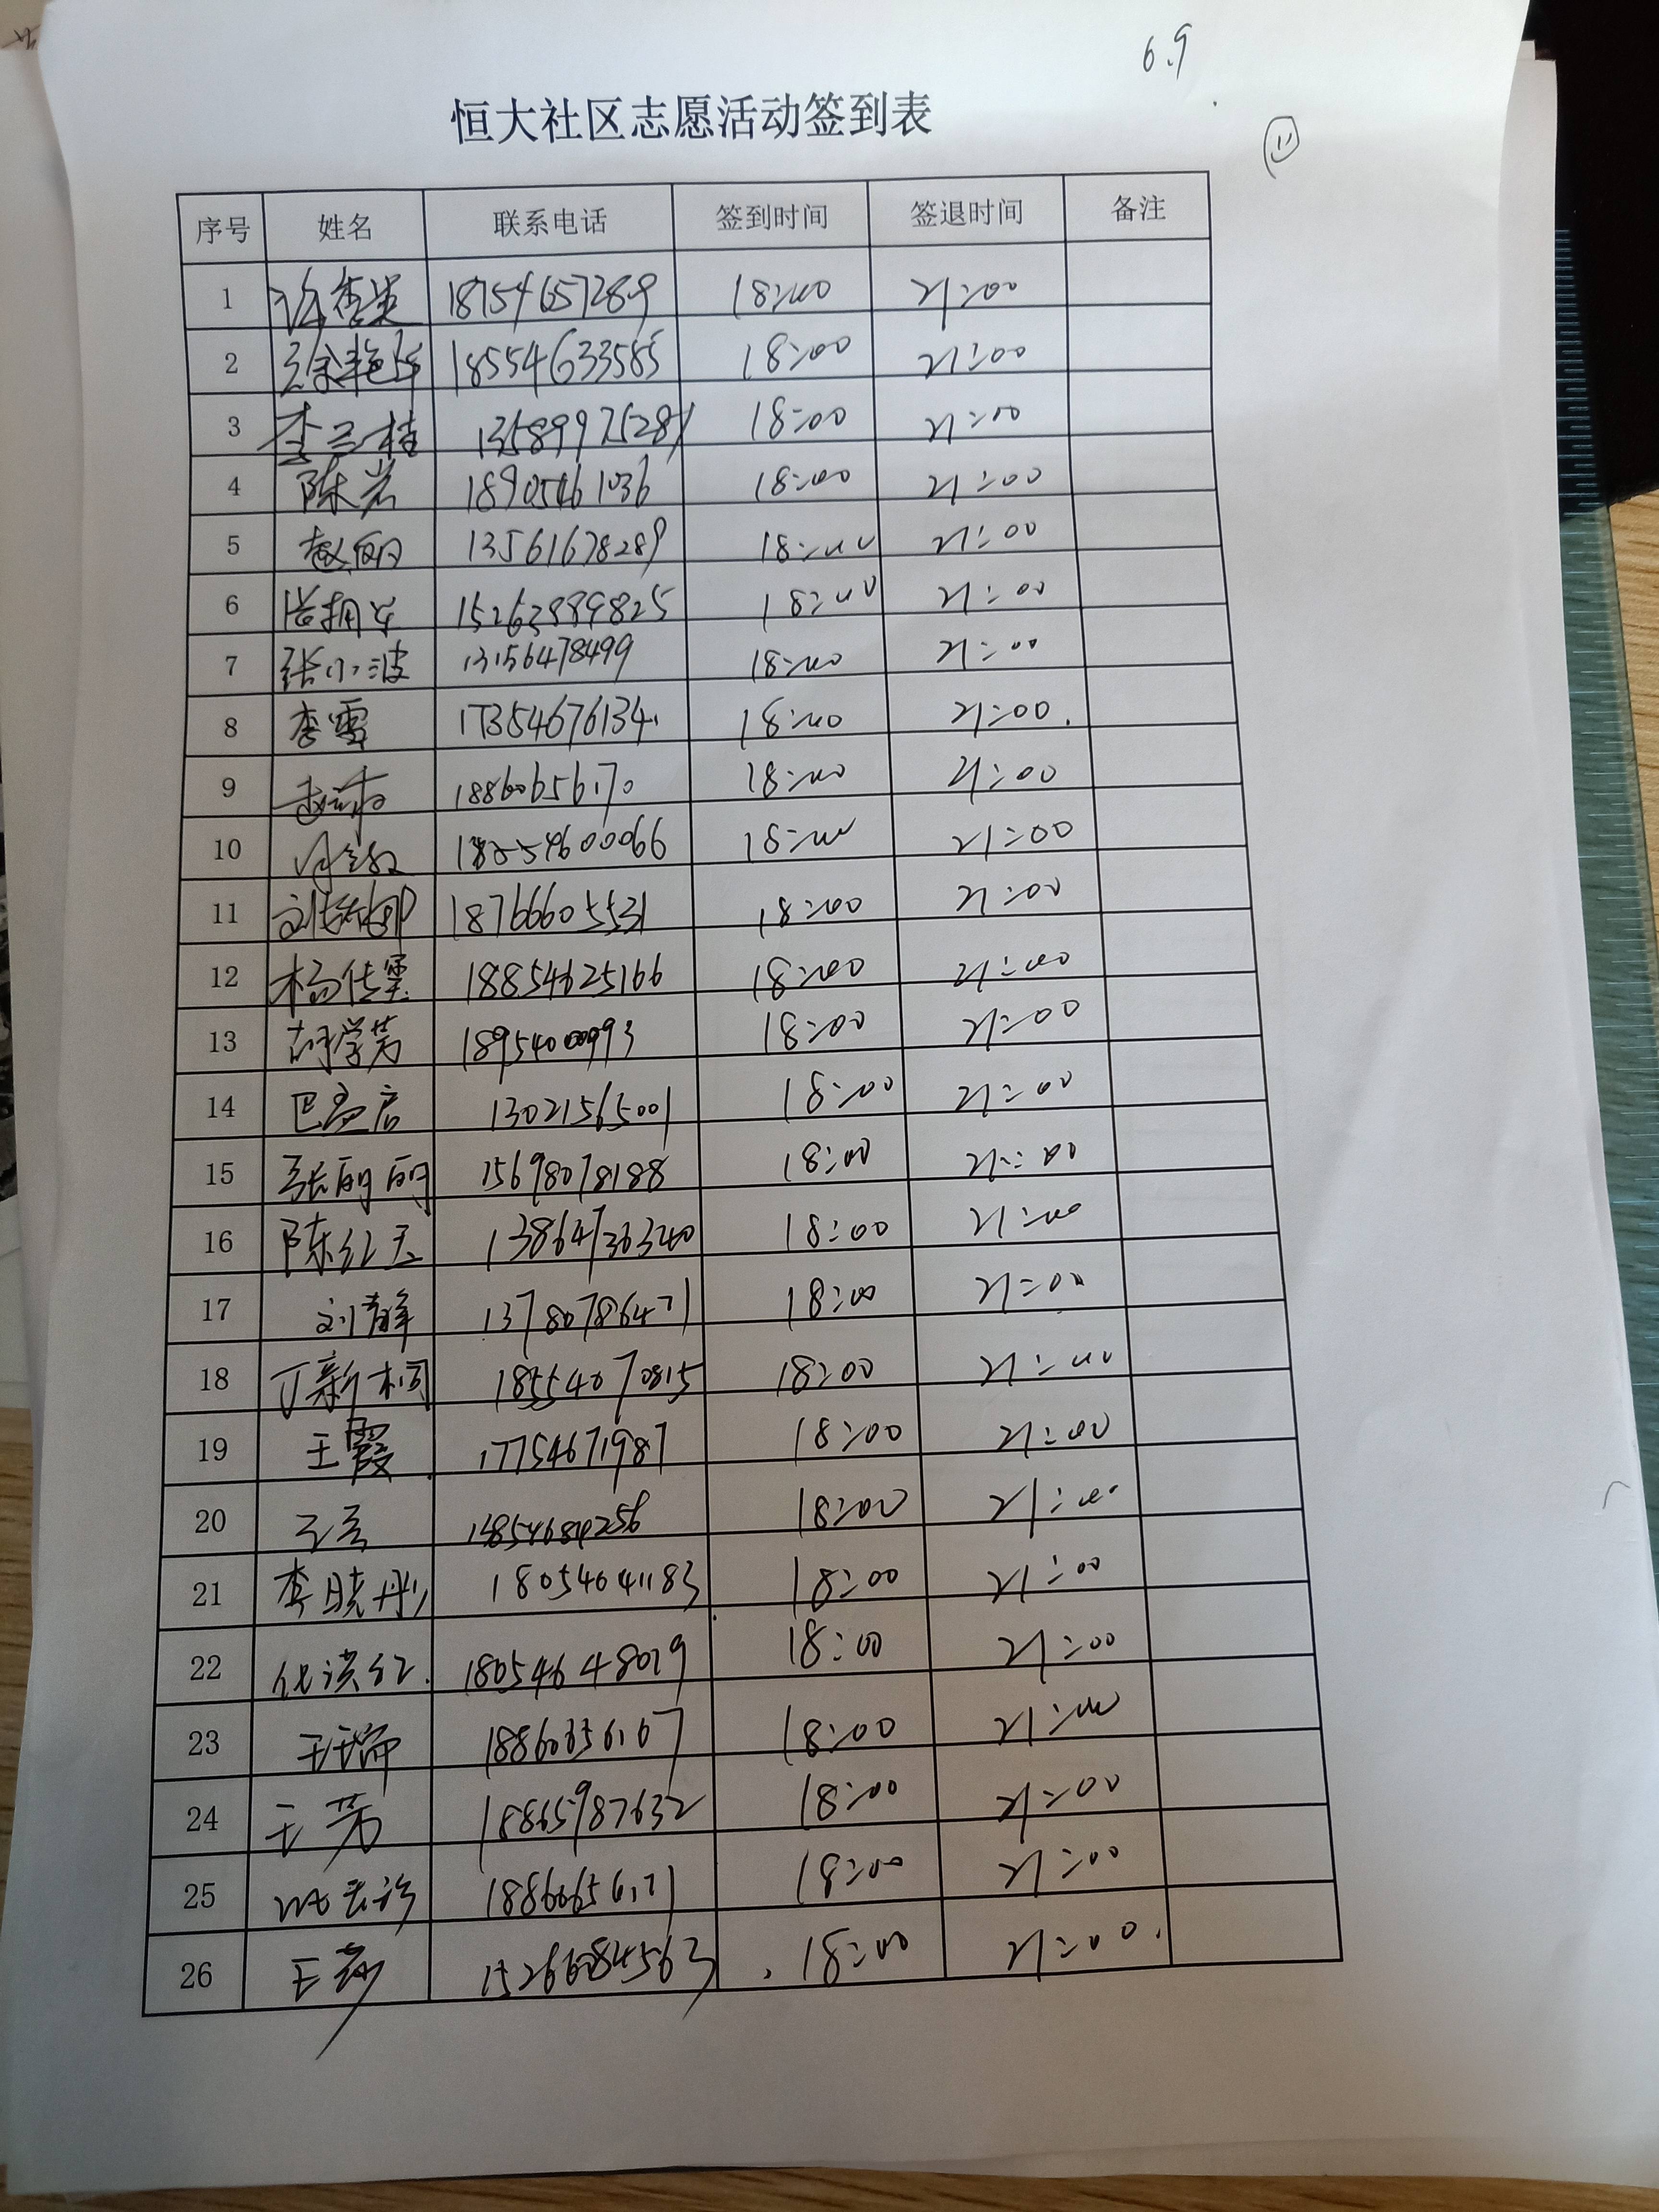 6.9
恒大社区志愿活动签到表
11
序号 姓名 联系电话 签到时间 签退时间 备注
1 18754657289 18:00 21:00
2 18554633585 18:00 21:00
3 李兰桂 13589975281 18:00 21:00
4 陈岩 18905461036 18:00 21:00
5 赵丽 13561678289 18:00 21:00
6 15263889825 18:00 21:00
7 张小波 13156478499 18:00 21:00
8 李雪 17354676134 18:00 21:00.
9 18860656170 18:00 21:00
10 18:00 21:00
11 18766605531 18:00 21:00
12 杨佳墨 18854625166 18:00 21:00
13 胡学芳 18954000993 18:00 21:00
14 巴孟启 13021565001 18:00 21:00
15 张丽丽 15698078188 18:00 21:00
16 陈红玉 13864736340 18:00 21:00
17 刘静 13780786471 18:00 21:00
18 丁新桐 18554070815 18:00 21:00
19 王霞 17754671987 18:00 21:00
20 18:00 21:00
21 李晓彤 18054641183 18:00 21:00
22 18054648019 18:00 21:00
23 18:00 21:00
24 王芳 18865987632 18:00 21:00
25 18860656171 18:00 21:00
26 王莎 15266084563 18:00 21:00.